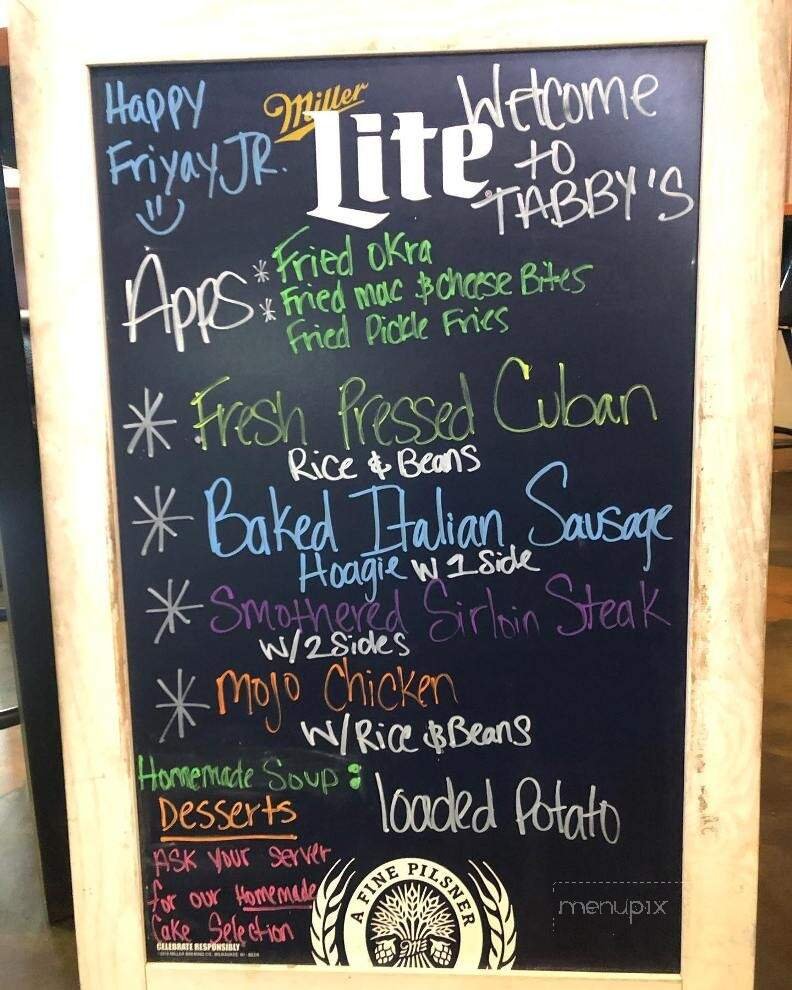 Happy
Friyay JR.
Miller
Lite
Welcome
to
TABBY'S
Apps
* Fried Okra
* Fried mac & cheese Bites
Fried Pickle Fries
* Fresh Pressed Cuban
Rice & Beans
* Baked Italian Sausage
Hoagie W 1 Side
* Smothered Sirloin Steak
W/ 2 Sides
* Mojo Chicken
W/ Rice & Beans
Homemade Soup:
loaded Potato
Desserts
ASK your server
for our Homemade
Cake Selection
CELEBRATE RESPONSIBLY
A FINE PILSNER
menupix